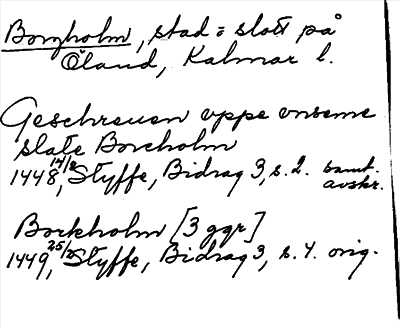 Borgholm, stad o slott på
Öland, Kalmar l.
Geschreuen vppe vnseme
slate Borcholm
1448 14/8, Styffe, Bidrag 3, s. 2. samt.
avskr.
Borkholm [3 ggr]
1449, 25/2 Styffe, Bidrag 3, s. 4. orig.